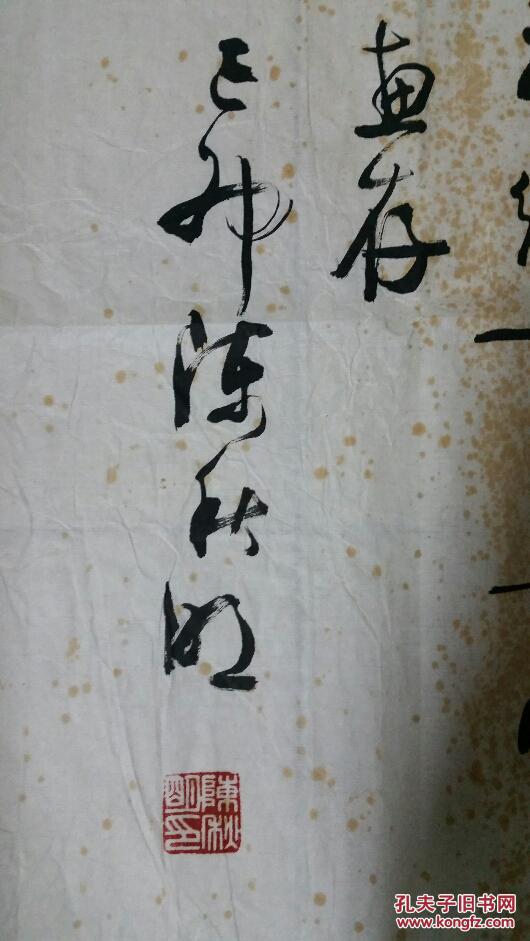 惠存
己卯陈秋明
陳秋
明印
孔夫子旧书网
www.kongfz.com